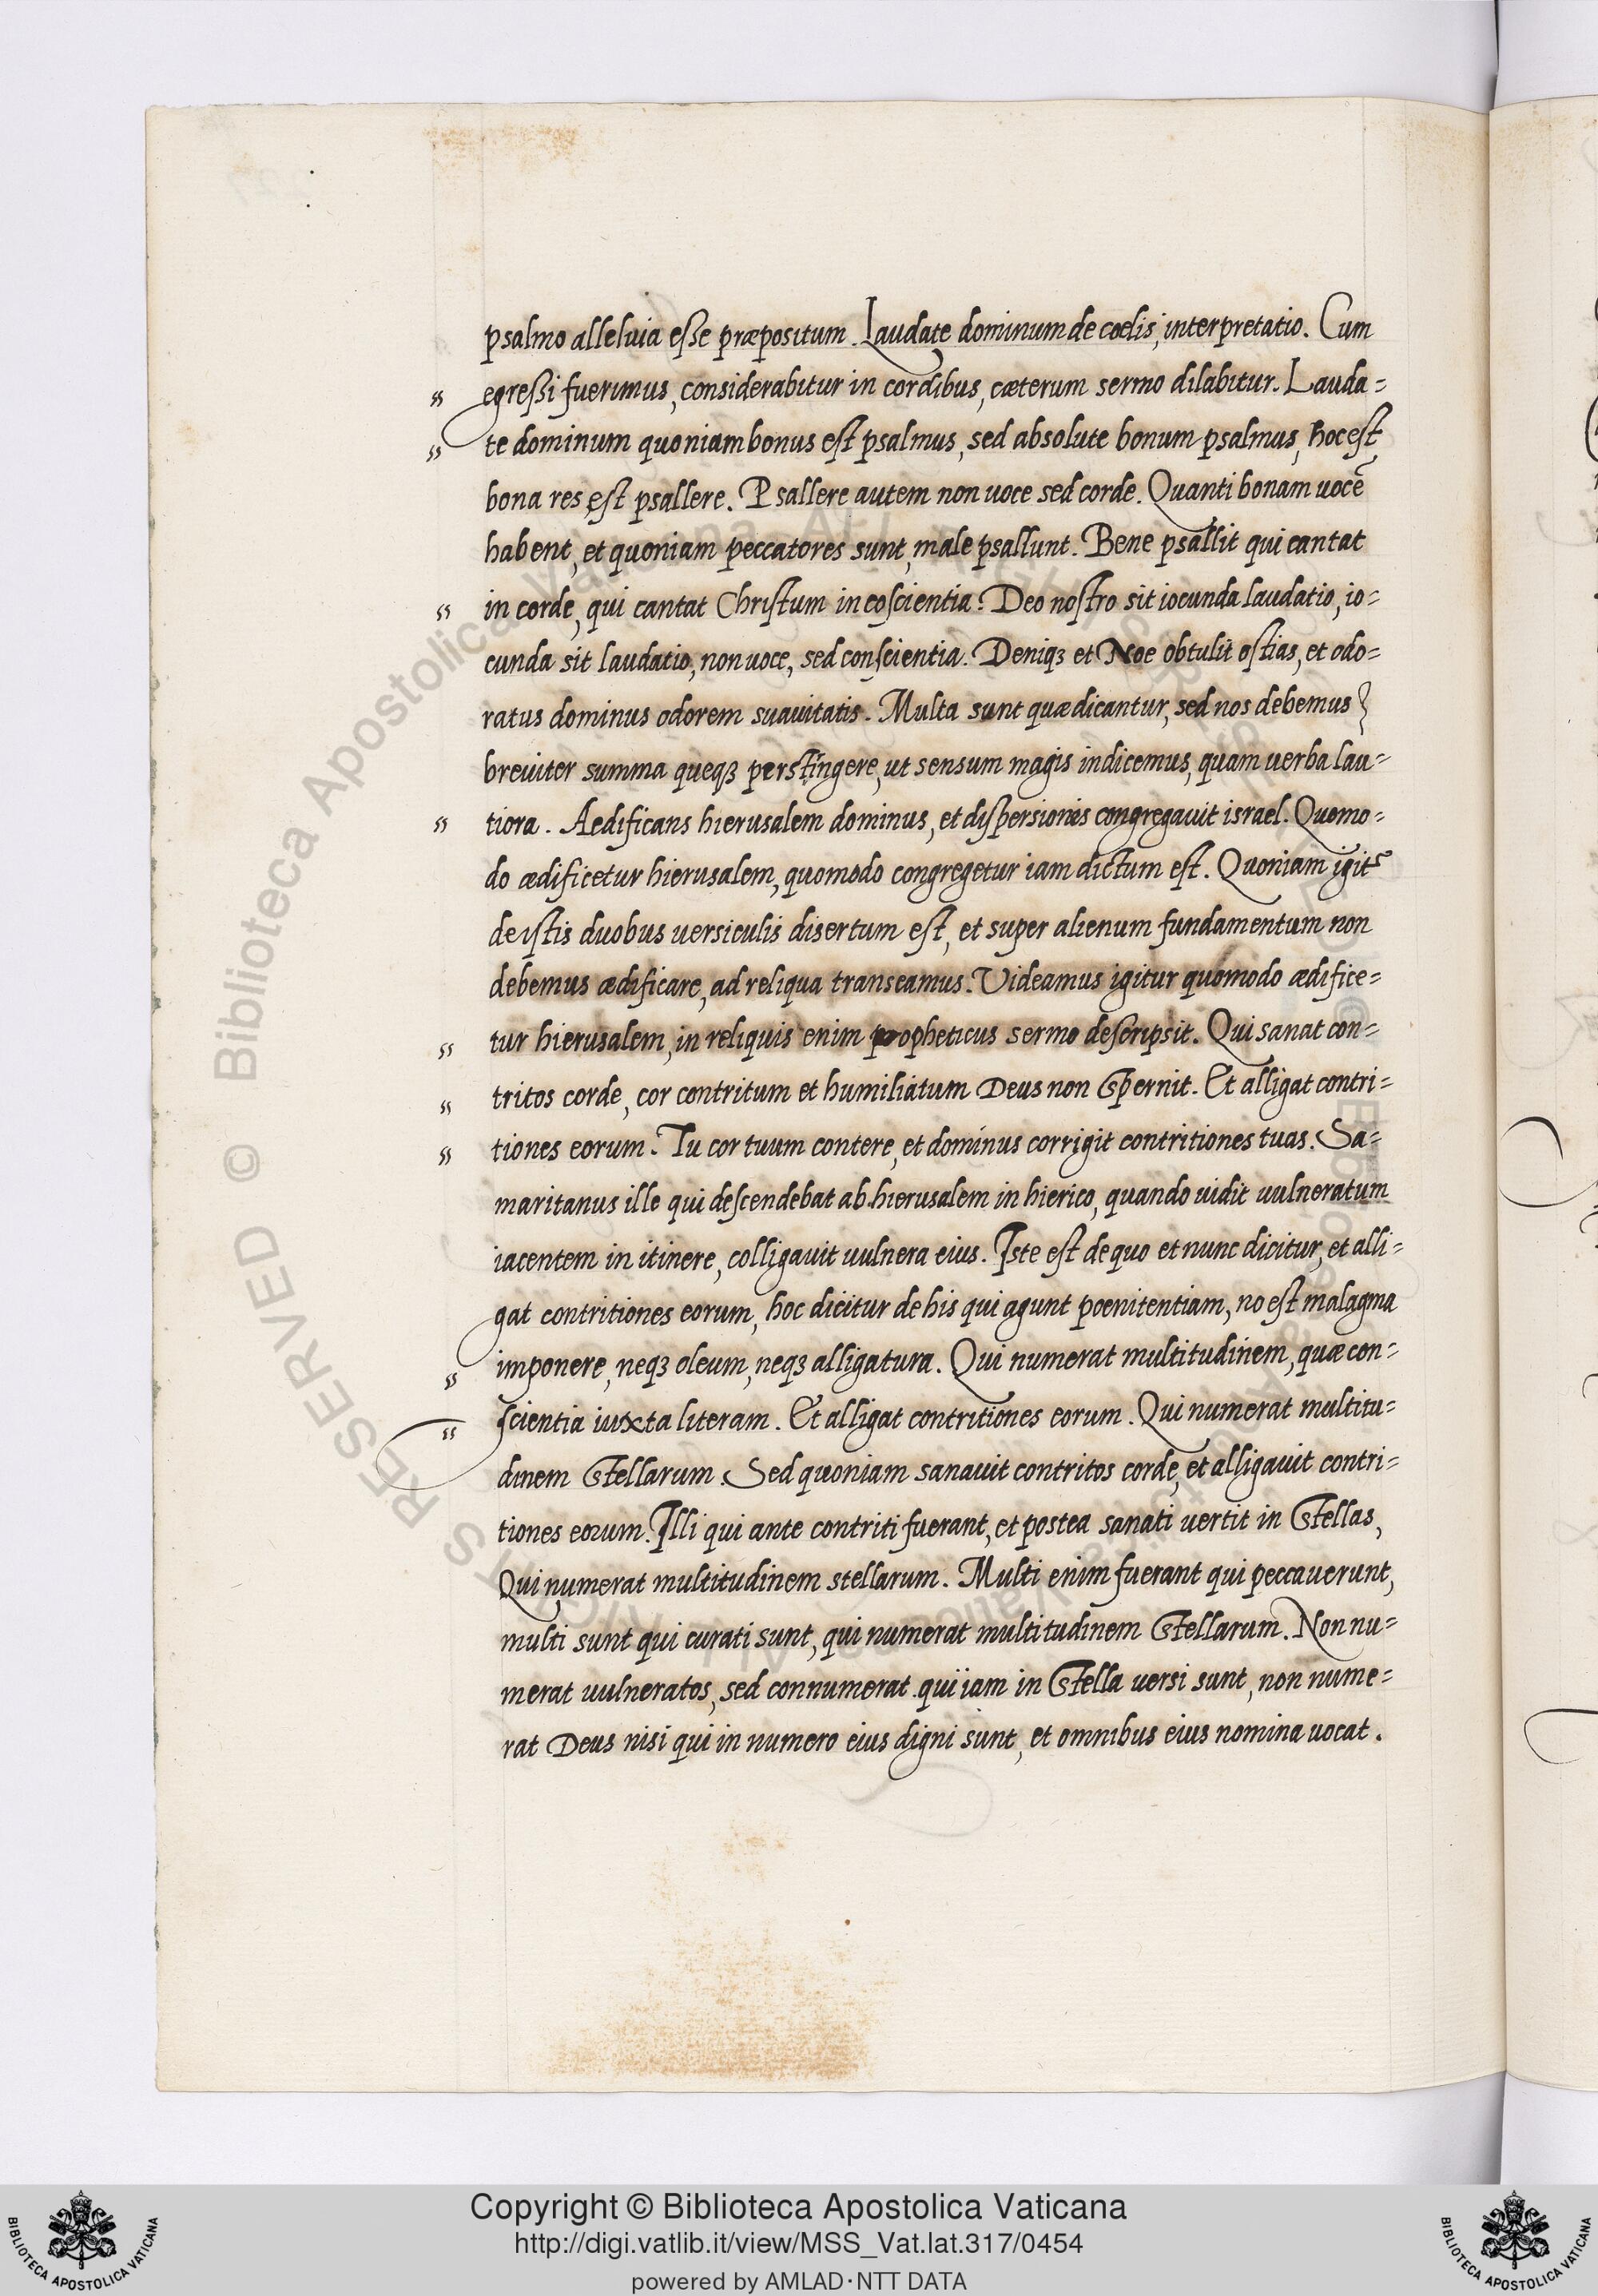 psalmo alleluia esse præpositum. Laudate dominum de cœlis, interpretatio. Cum
egressi fuerimus, considerabitur in cordibus, cæterum sermo dilabitur. Lauda=
te dominum quoniam bonus est psalmus, sed absolute bonum psalmus, hoc est,
bona res est psallere. Psallere autem non uoce sed corde. Quanti bonam uocē
habent, et quoniam peccatores sunt, male psallunt. Bene psallit qui cantat
in corde, qui cantat Christum in coscientia. Deo nostro sit iocunda laudatio, io=
cunda sit laudatio, non uoce, sed conscientia. Deniqȝ et Noe obtulit ostias, et odo=
ratus dominus odorem suauitatis. Multa sunt quæ dicantur, sed nos debemus
breuiter summa queqȝ perstingere, ut sensum magis indicemus, quam uerba lau=
tiora. Aedificans hierusalem dominus, et dispersiones congregauit israel. Quomo=
do ædificetur hierusalem, quomodo congregetur iam dictum est. Quoniam igitᵣ
de istis duobus uersiculis disertum est, et super alienum fundamentum non
debemus ædificare, ad reliqua transeamus. Videamus igitur quomodo ædifice=
tur hierusalem, in reliquis enim propheticus sermo descripsit. Qui sanat con=
tritos corde, cor contritum et humiliatum Deus non spernit. Et alligat contri=
tiones eorum. Tu cor tuum contere, et dominus corrigit contritiones tuas. Sa=
maritanus ille qui descendebat ab hierusalem in hierico, quando uidit uulneratum
iacentem in itinere, colligauit uulnera eius. Iste est de quo et nunc dicitur, et alli=
gat contritiones eorum, hoc dicitur de his qui agunt pœnitentiam, no est malagma
imponere, neqȝ oleum, neqȝ alligatura. Qui numerat multitudinem, quæ con=
scientia iuxta literam. Et alligat contritiones eorum. Qui numerat multitu=
dinem stellarum. Sed quoniam sanauit contritos corde, et alligauit contri=
tiones eorum. Illi qui ante contriti fuerant, et postea sanati uertit in stellas,
Qui numerat multitudinem stellarum. Multi enim fuerant qui peccauerunt,
multi sunt qui curati sunt, qui numerat multitudinem stellarum. Non nu=
merat uulneratos, sed connumerat qui iam in stella uersi sunt, non nume=
rat Deus nisi qui in numero eius digni sunt, et omnibus eius nomina uocat.
Copyright © Biblioteca Apostolica Vaticana
http://digi.vatlib.it/view/MSS_Vat.lat.317/0454
powered by AMLAD·NTT DATA
BIBLIOTECA APOSTOLICA VATICANA
BIBLIOTECA APOSTOLICA VATICANA